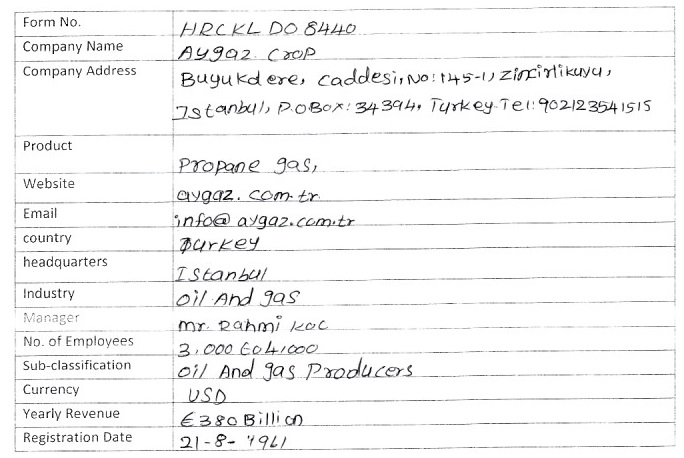 Form No. HRCKL DO 8440
Company Name Aygaz Crop
Company Address Buyukdere, caddesi, No: 145-1, Zincirlikuyu,
Istanbul, P.O Box: 34394, Turkey. Tel: 902123541515
Product Propane gas,
Website aygaz.com.tr
Email info@aygaz.com.tr
country Turkey
headquarters Istanbul
Industry Oil And gas
Manager mr. Rahmi koc
No. of Employees 3,000 to 4,000
Sub-classification Oil And gas Producers
Currency USD
Yearly Revenue €380 Billion
Registration Date 21-8-1961